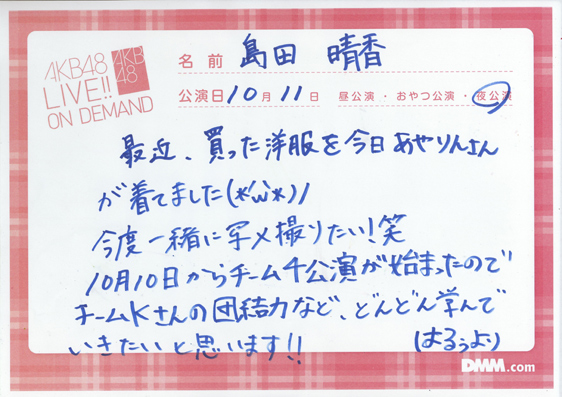 AKB48
LIVE!!
ON DEMAND
AKB
48
名前 島田 晴香
公演日 10月 11日 昼公演・おやつ公演・夜公演
最近、買った洋服を今日あやりんさん
が着てました(*'ω'*)ノ
今度一緒に写メ撮りたい!笑
10月10日からチーム4公演が始まったので
チームKさんの団結力など、どんどん学んで
いきたいと思います!!
(はるぅより)
DMM.com